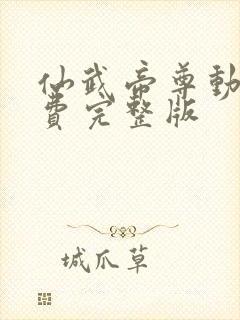 仙武帝尊動
費完整版
城爪草